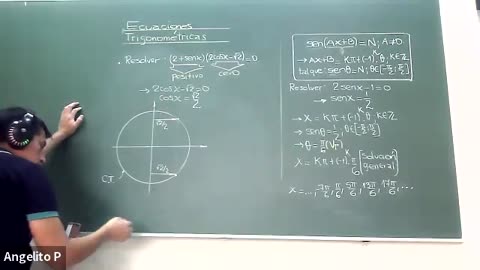 Ecuaciones
Trigonométricas
• Resolver: (2+senx)(2cosx-√2)=0
positivo
ce=0
→ 2cosx-√2=0
cosx=√2/2
√2/2
√2/2
C.T.
sen(Ax+B)=N; A≠0
→ Ax+B=Kπ+(-1)^K θ, K∈Z
tal que: senθ=N; θ∈[-π/2;π/2]
Resolver: 2senx-1=0
→ senx=1/2
→ x=Kπ+(-1)^K θ; K∈Z
→ senθ=1/2; θ∈[-π/2;π/2]
→ θ=π/6
x=Kπ+(-1)^K π/6 {Solución General}
Angelito P